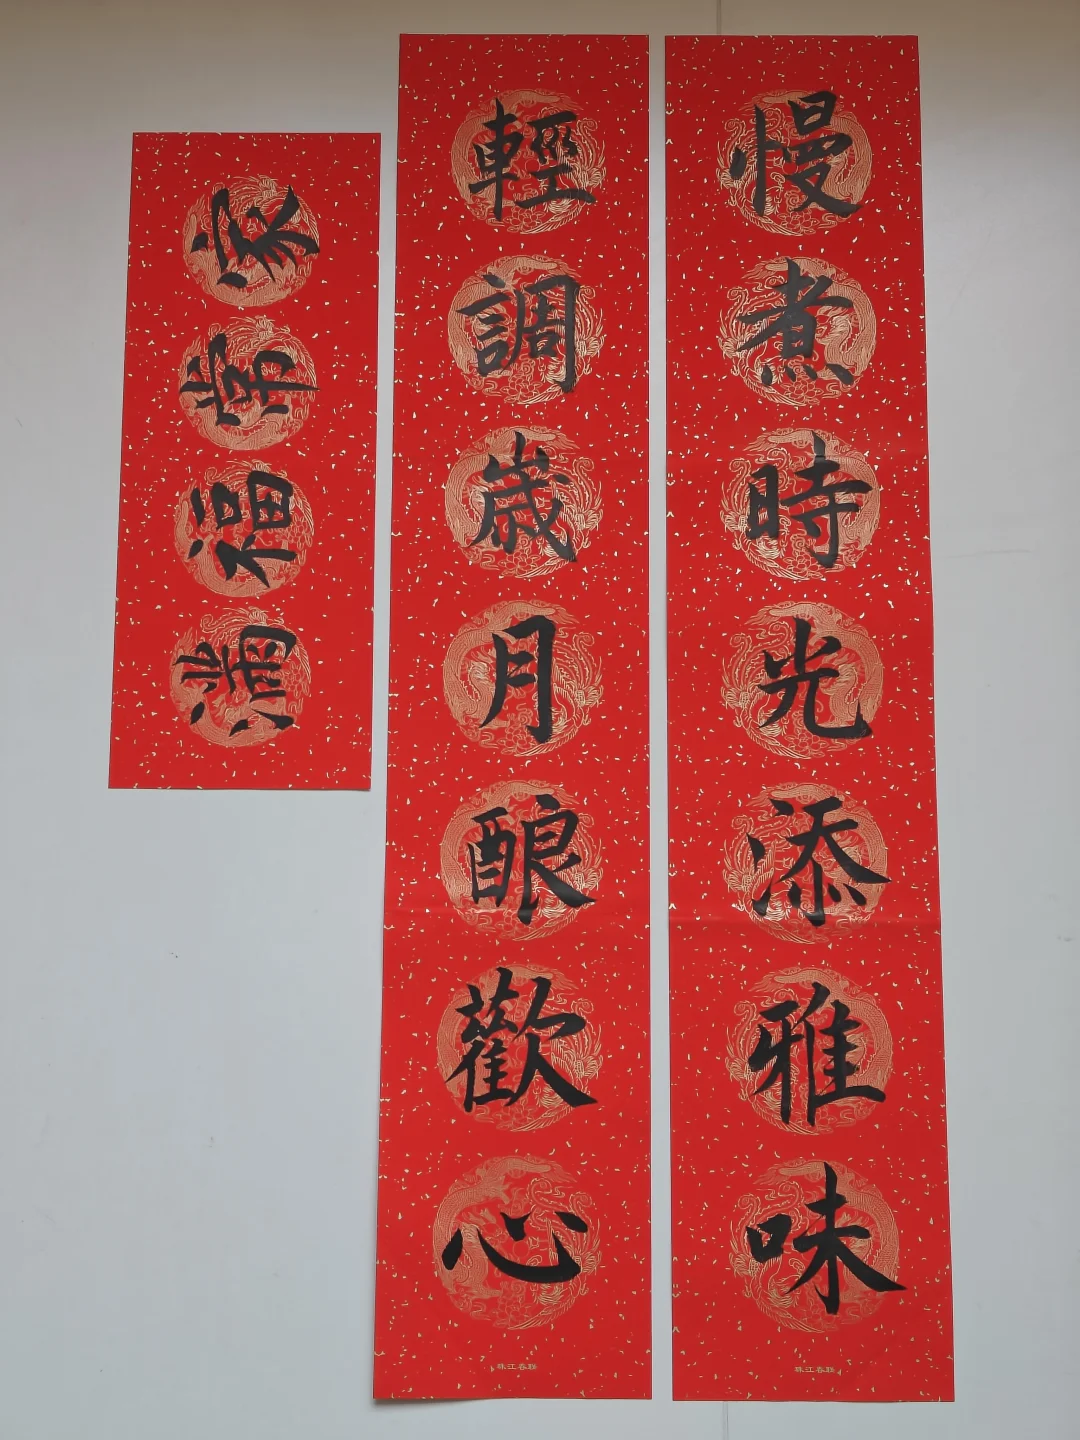 慢煮時光添雅味
輕調歳月酿歡心
家常福滿
珠江春聯
珠江春聯